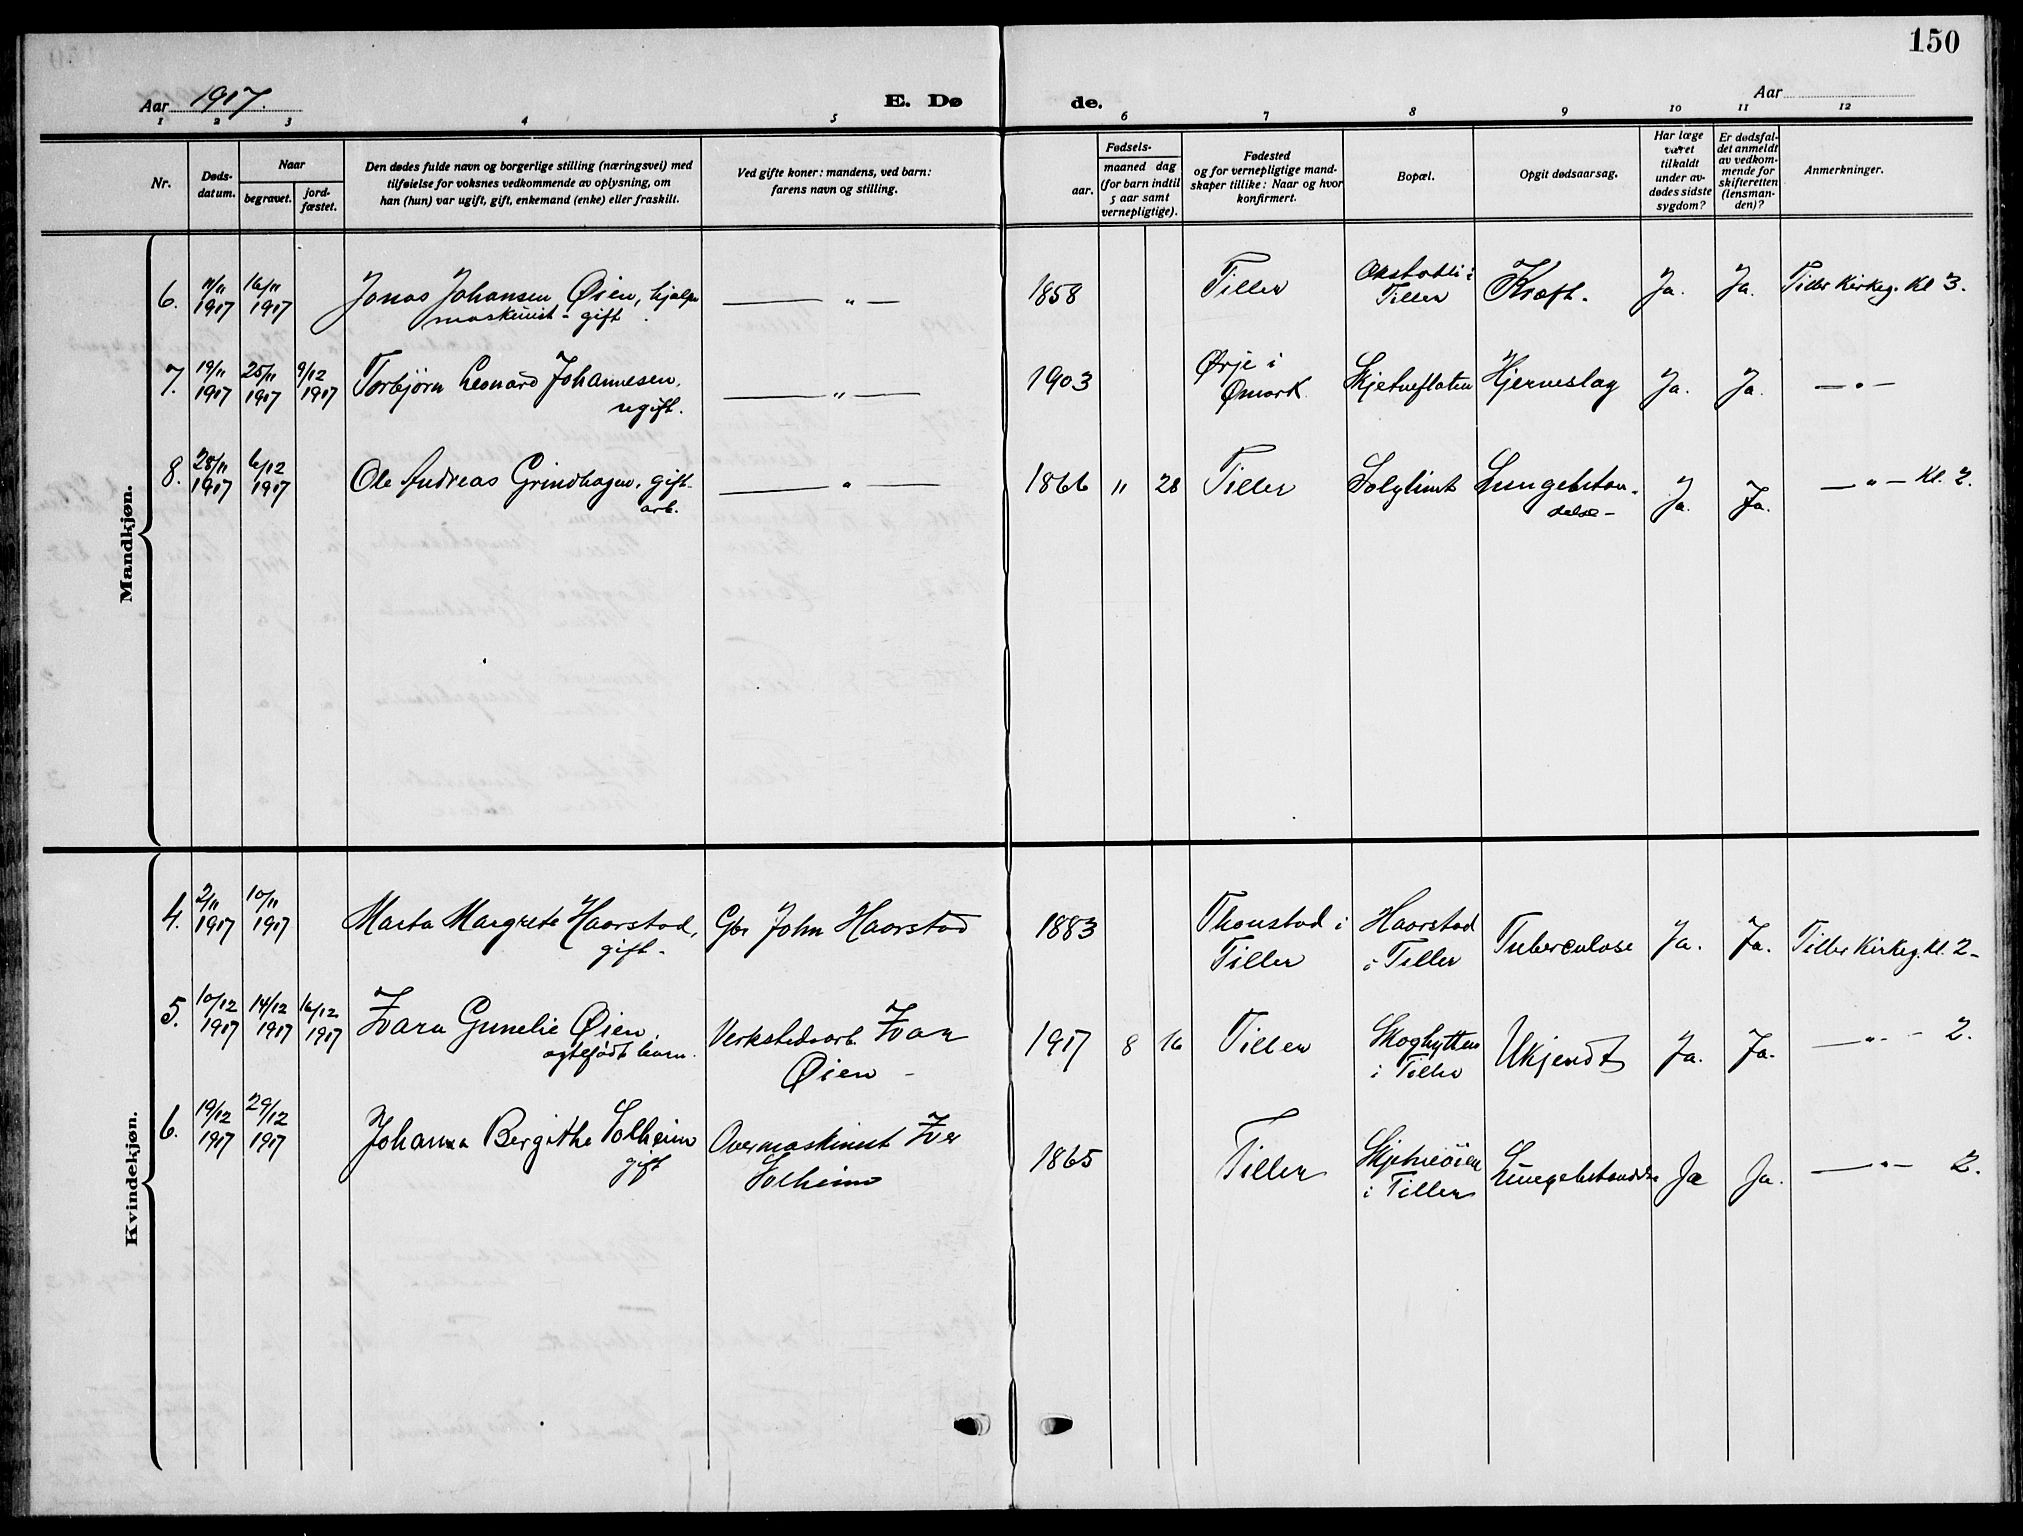 150
Aar 1917.
E. Dø
de.
Aar
1 2 3 4 5 6 7 8 9 10 11 12
Nr.
Døds-
datum.
Naar
begravet.
jord-
fæstet.
Den dødes fulde navn og borgerlige stilling (næringsvei) med
tilføielse for voksnes vedkommende av oplysning, om
han (hun) var ugift, gift, enkemand (enke) eller fraskilt.
Ved gifte koner: mandens, ved barn:
farens navn og stilling.
Fødsels-
aar.
maaned dag
(for barn indtil
5 aar samt
vernepligtige).
Fødested
og for vernepligtige mand-
skaper tillike: Naar og hvor
konfirmert.
Bopæl.
Opgit dødsaarsag.
Har læge
været
tilkaldt
under av-
dødes sidste
sygdom?
Er dødsfal-
det anmeldt
av vedkom-
mende for
skifteretten
(lensman-
den)?
Anmerkninger.
Mandkjøn.
6. 11/11 1917 16/11 1917 Jonas Johansen Øien, hjælpe
maskinist - gift — " — 1858 Tiller i
Tiller Kræft. Ja. Ja. Tiller Kirkeg. Kl 3.
7. 19/11 1917 25/11 1917 9/12 1917 Torbjørn Leonard Johannesen.
ugift. — " — 1903 Ørje i
Ømark Skjetneflaten Hjerneslag Ja. Ja. — " —
8. 28/11 1917 6/12 1917 Ole Andreas Grindhagen, gift
arb. — " — 1866 " 28 Tiller Solglimt Lungebetæn-
delse - Ja. Ja. — " — Kl. 2.
Kvindekjøn.
4. 2/11 1917 10/11 1917 Marta Margrete Haarstad,
gift - Gbr John Haarstad 1883 Thonstad i
Tiller Haarstad
i Tiller Tuberculose Ja. Ja. Tiller Kirkeg. Kl. 2-
5. 10/12 1917 14/12 1917 16/12 1917 Ivara Gunelie Øien,
ægtefødt barn. Verkstedsarb. Ivar
Øien - 1917 8 16 Tiller Skoghytten
i Tiller Ukjendt Ja. Ja. — " — 2.
6. 19/12 1917 29/12 1917 Johanna Bergithe Solheim
gift Overmaskinist Iver
Solheim 1865 Tiller Skjetneøien
i Tiller Lungebetændelse Ja Ja. — " — 2.